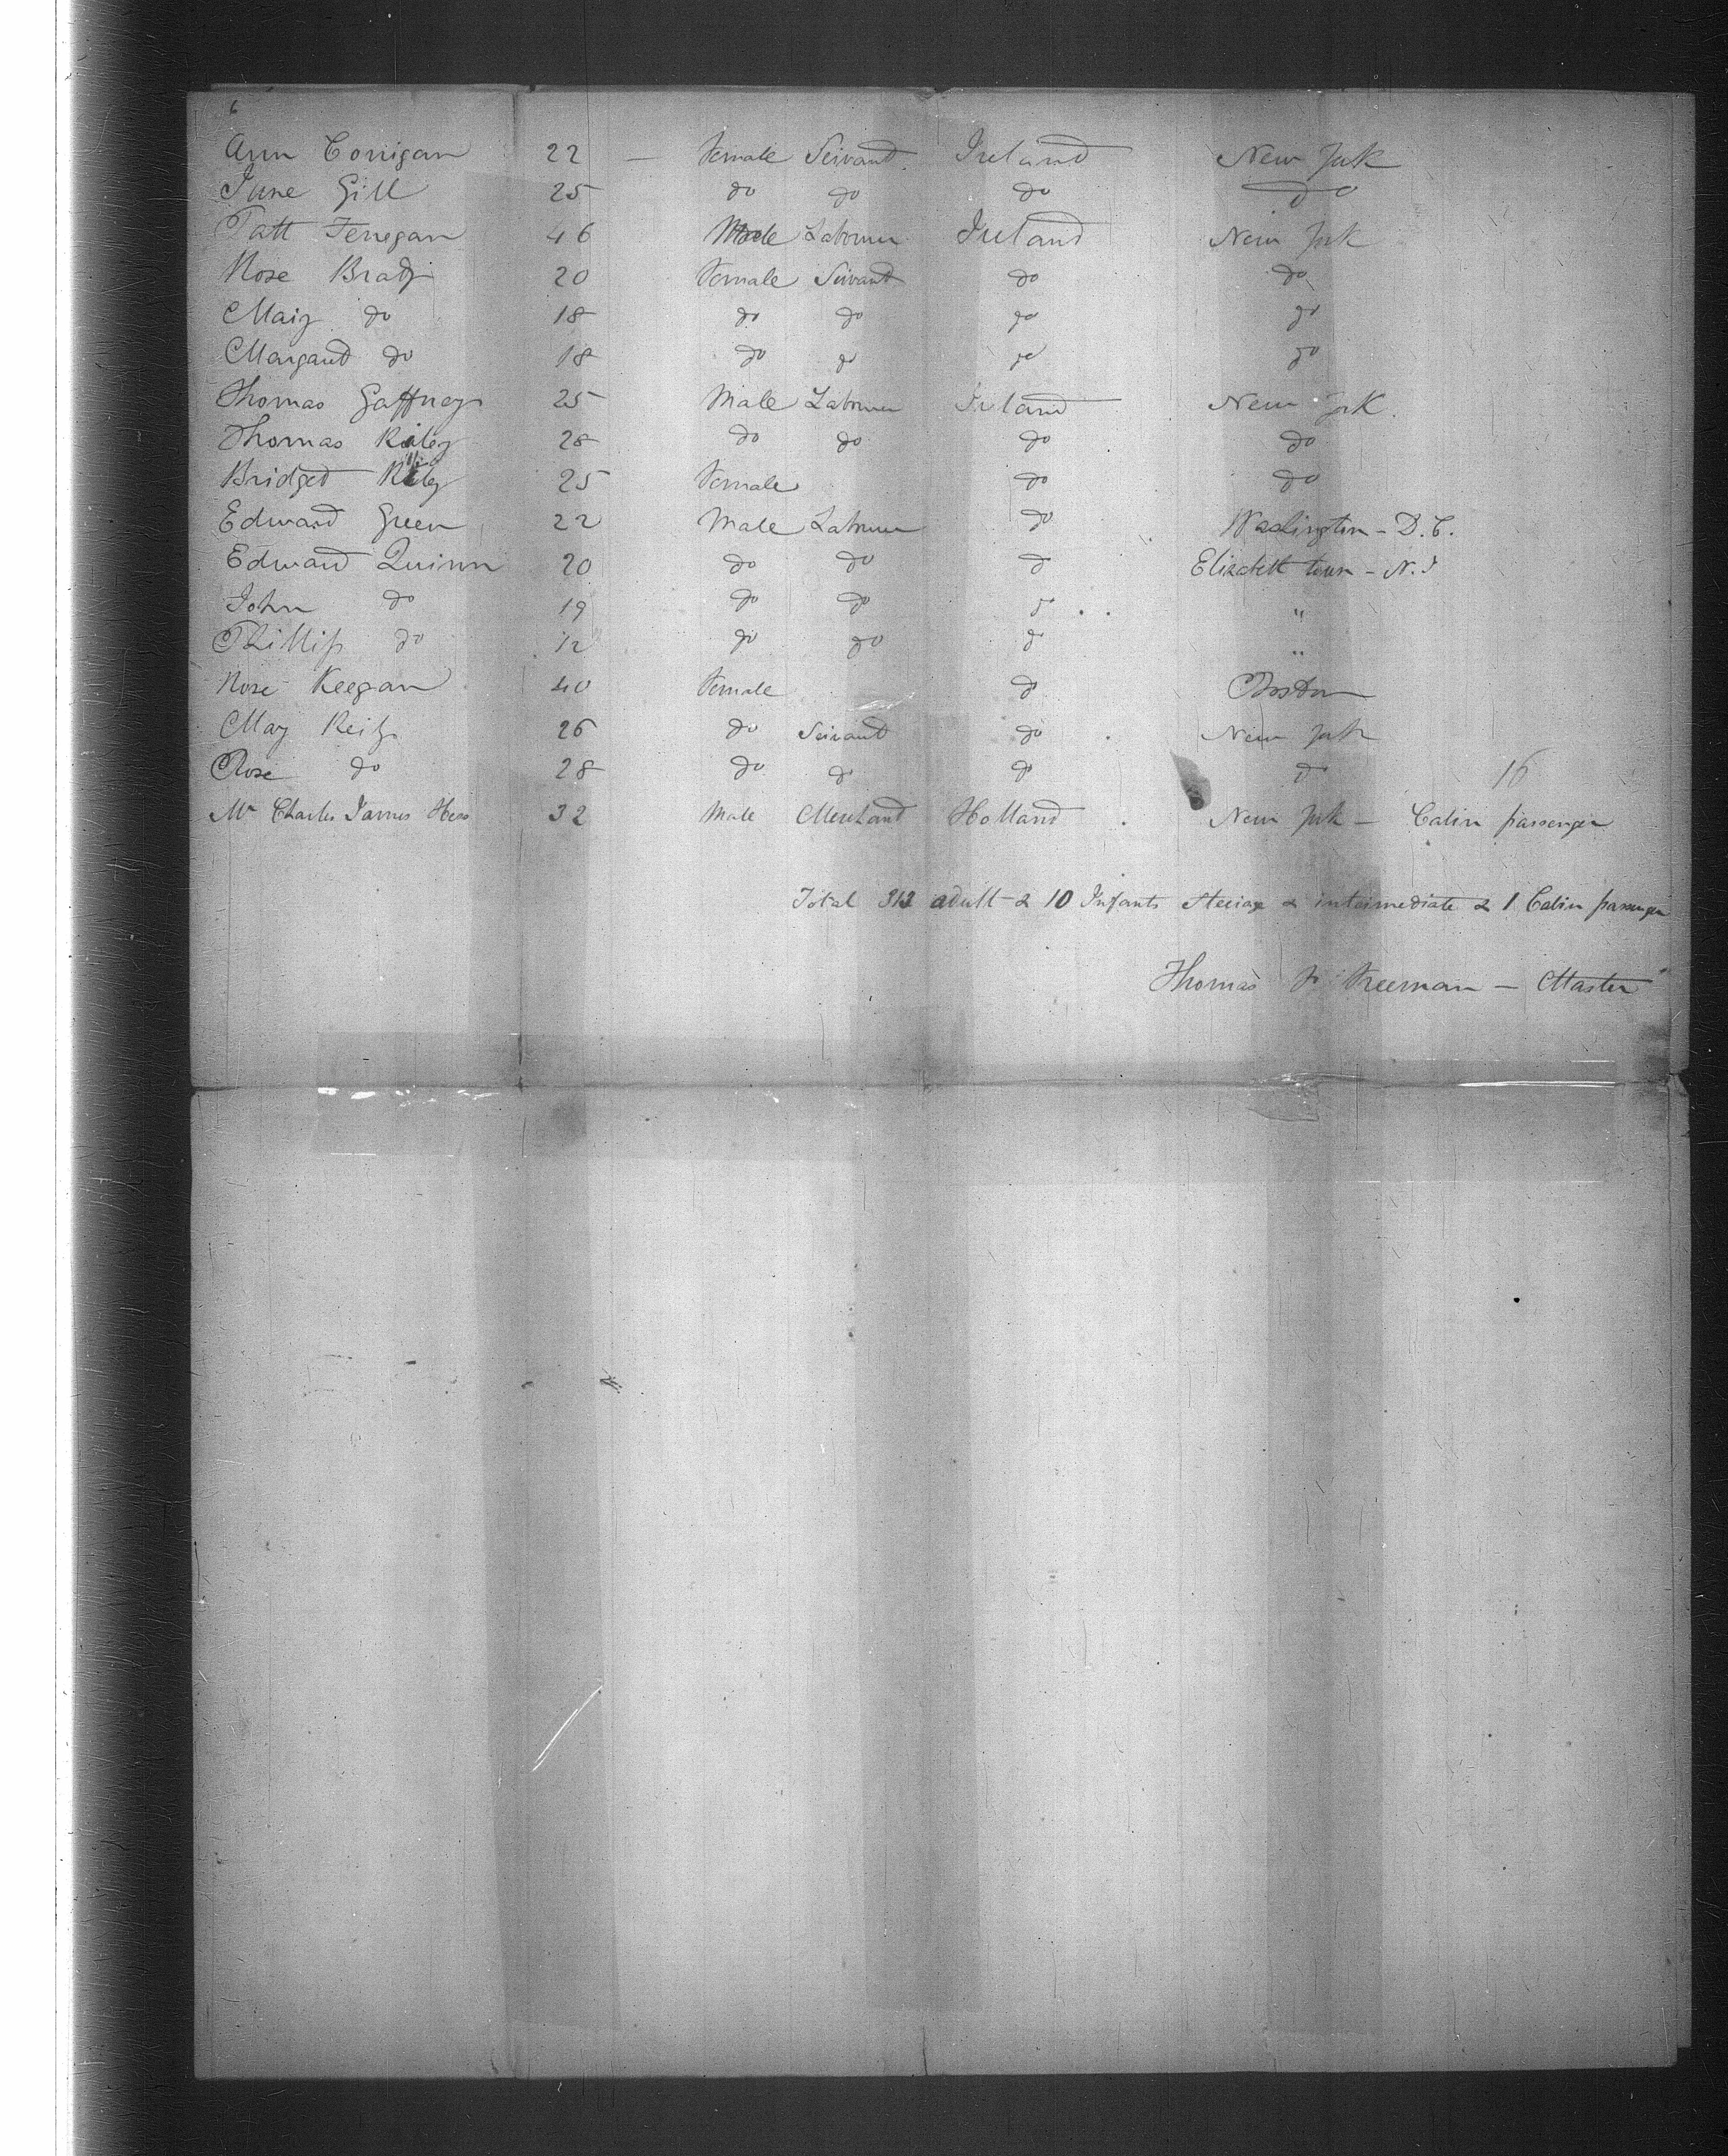 6
Ann Corrigan 22 — Female Servant Ireland New York
June Gill 25 do do do do
Patt Fenegan 46 Male Labourer Ireland New York
Rose Brady 20 Female Servant do do
Mary do 18 do do do do
Margaret do 18 do do do do
Thomas Gaffney 25 Male Labourer Ireland New York
Thomas Riley 28 do do do do
Bridget Riley 25 Female do do
Edward Green 22 Male Labourer do Washington - D.C.
Edward Quinn 20 do do do Elizabeth town - N.J
John do 19 do do do "
Phillip do 12 do do do "
Rose Keegan 40 Female do Boston
May 26 do Servant do New York
Rose do 28 do do do do 16
Mr Charles James Hess 32 Male Merchant Holland New York — Cabin passenger
Total 312 adult & 10 Infants Steerage & intermediate & 1 Cabin passenger
Thomas Freeman — Master